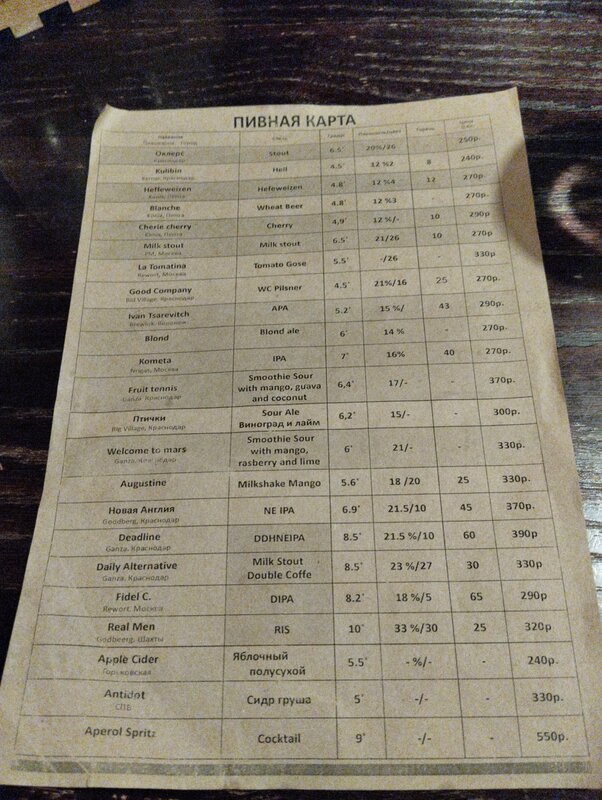 ПИВНАЯ КАРТА
Название Стиль Градус Плотность/ Горечь Цена
Оклерс Stout 6.5° 20%/26 250р.
Краснодар
Kulibin Hell 4.5° 12 %2 8 240р.
Краснодар
Heffeweizen Hefeweizen 4.8° 12 %4 12 270р.
Пенза
Blanche Wheat Beer 4.8° 12 %3 270р.
Пенза
Cherie cherry Cherry 4,9° 12 %/- 10 290р
Пенза
Milk stout Milk stout 6.5° 21/26 10 270р
Москва
La Tomatina Tomato Gose 5.5° -/26 - 330р
Rewort, Москва
Good Company WC Pilsner 4.5° 21%/16 25 270р.
Big Village, Краснодар
Ivan Tsarevitch APA 5.2° 15 %/ 43 290р.
Brewlok, Воронеж
Blond Blond ale 6° 14 % - 270р.
Kometa IPA 7° 16% 40 270р.
Москва
Fruit tennis Smoothie Sour
with mango, guava
and coconut 6,4° 17/- - 370р.
Ganza, Краснодар
Птички Sour Ale
Виноград и лайм 6,2° 15/- - 300р.
Big Village, Краснодар
Welcome to mars Smoothie Sour
with mango,
rasberry and lime 6° 21/- - 330р.
Ganza, Краснодар
Augustine Milkshake Mango 5.6° 18 /20 25 330р.
Новая Англия NE IPA 6.9° 21.5/10 45 370р.
Goodberg, Краснодар
Deadline DDHNEIPA 8.5° 21.5 %/10 60 390р
Ganza, Краснодар
Daily Alternative Milk Stout
Double Coffe 8.5° 23 %/27 30 330р
Ganza, Краснодар
Fidel C. DIPA 8.2° 18 %/5 65 290р
Rewort, Москва
Real Men RIS 10° 33 %/30 25 320р
Godbeerg, Шахты
Apple Cider Яблочный
полусухой 5.5° - %/- - 240р.
Горьковская
Antidot Сидр груша 5° -/- - 330р.
СПБ
Aperol Spritz Cocktail 9° -/- - 550р.